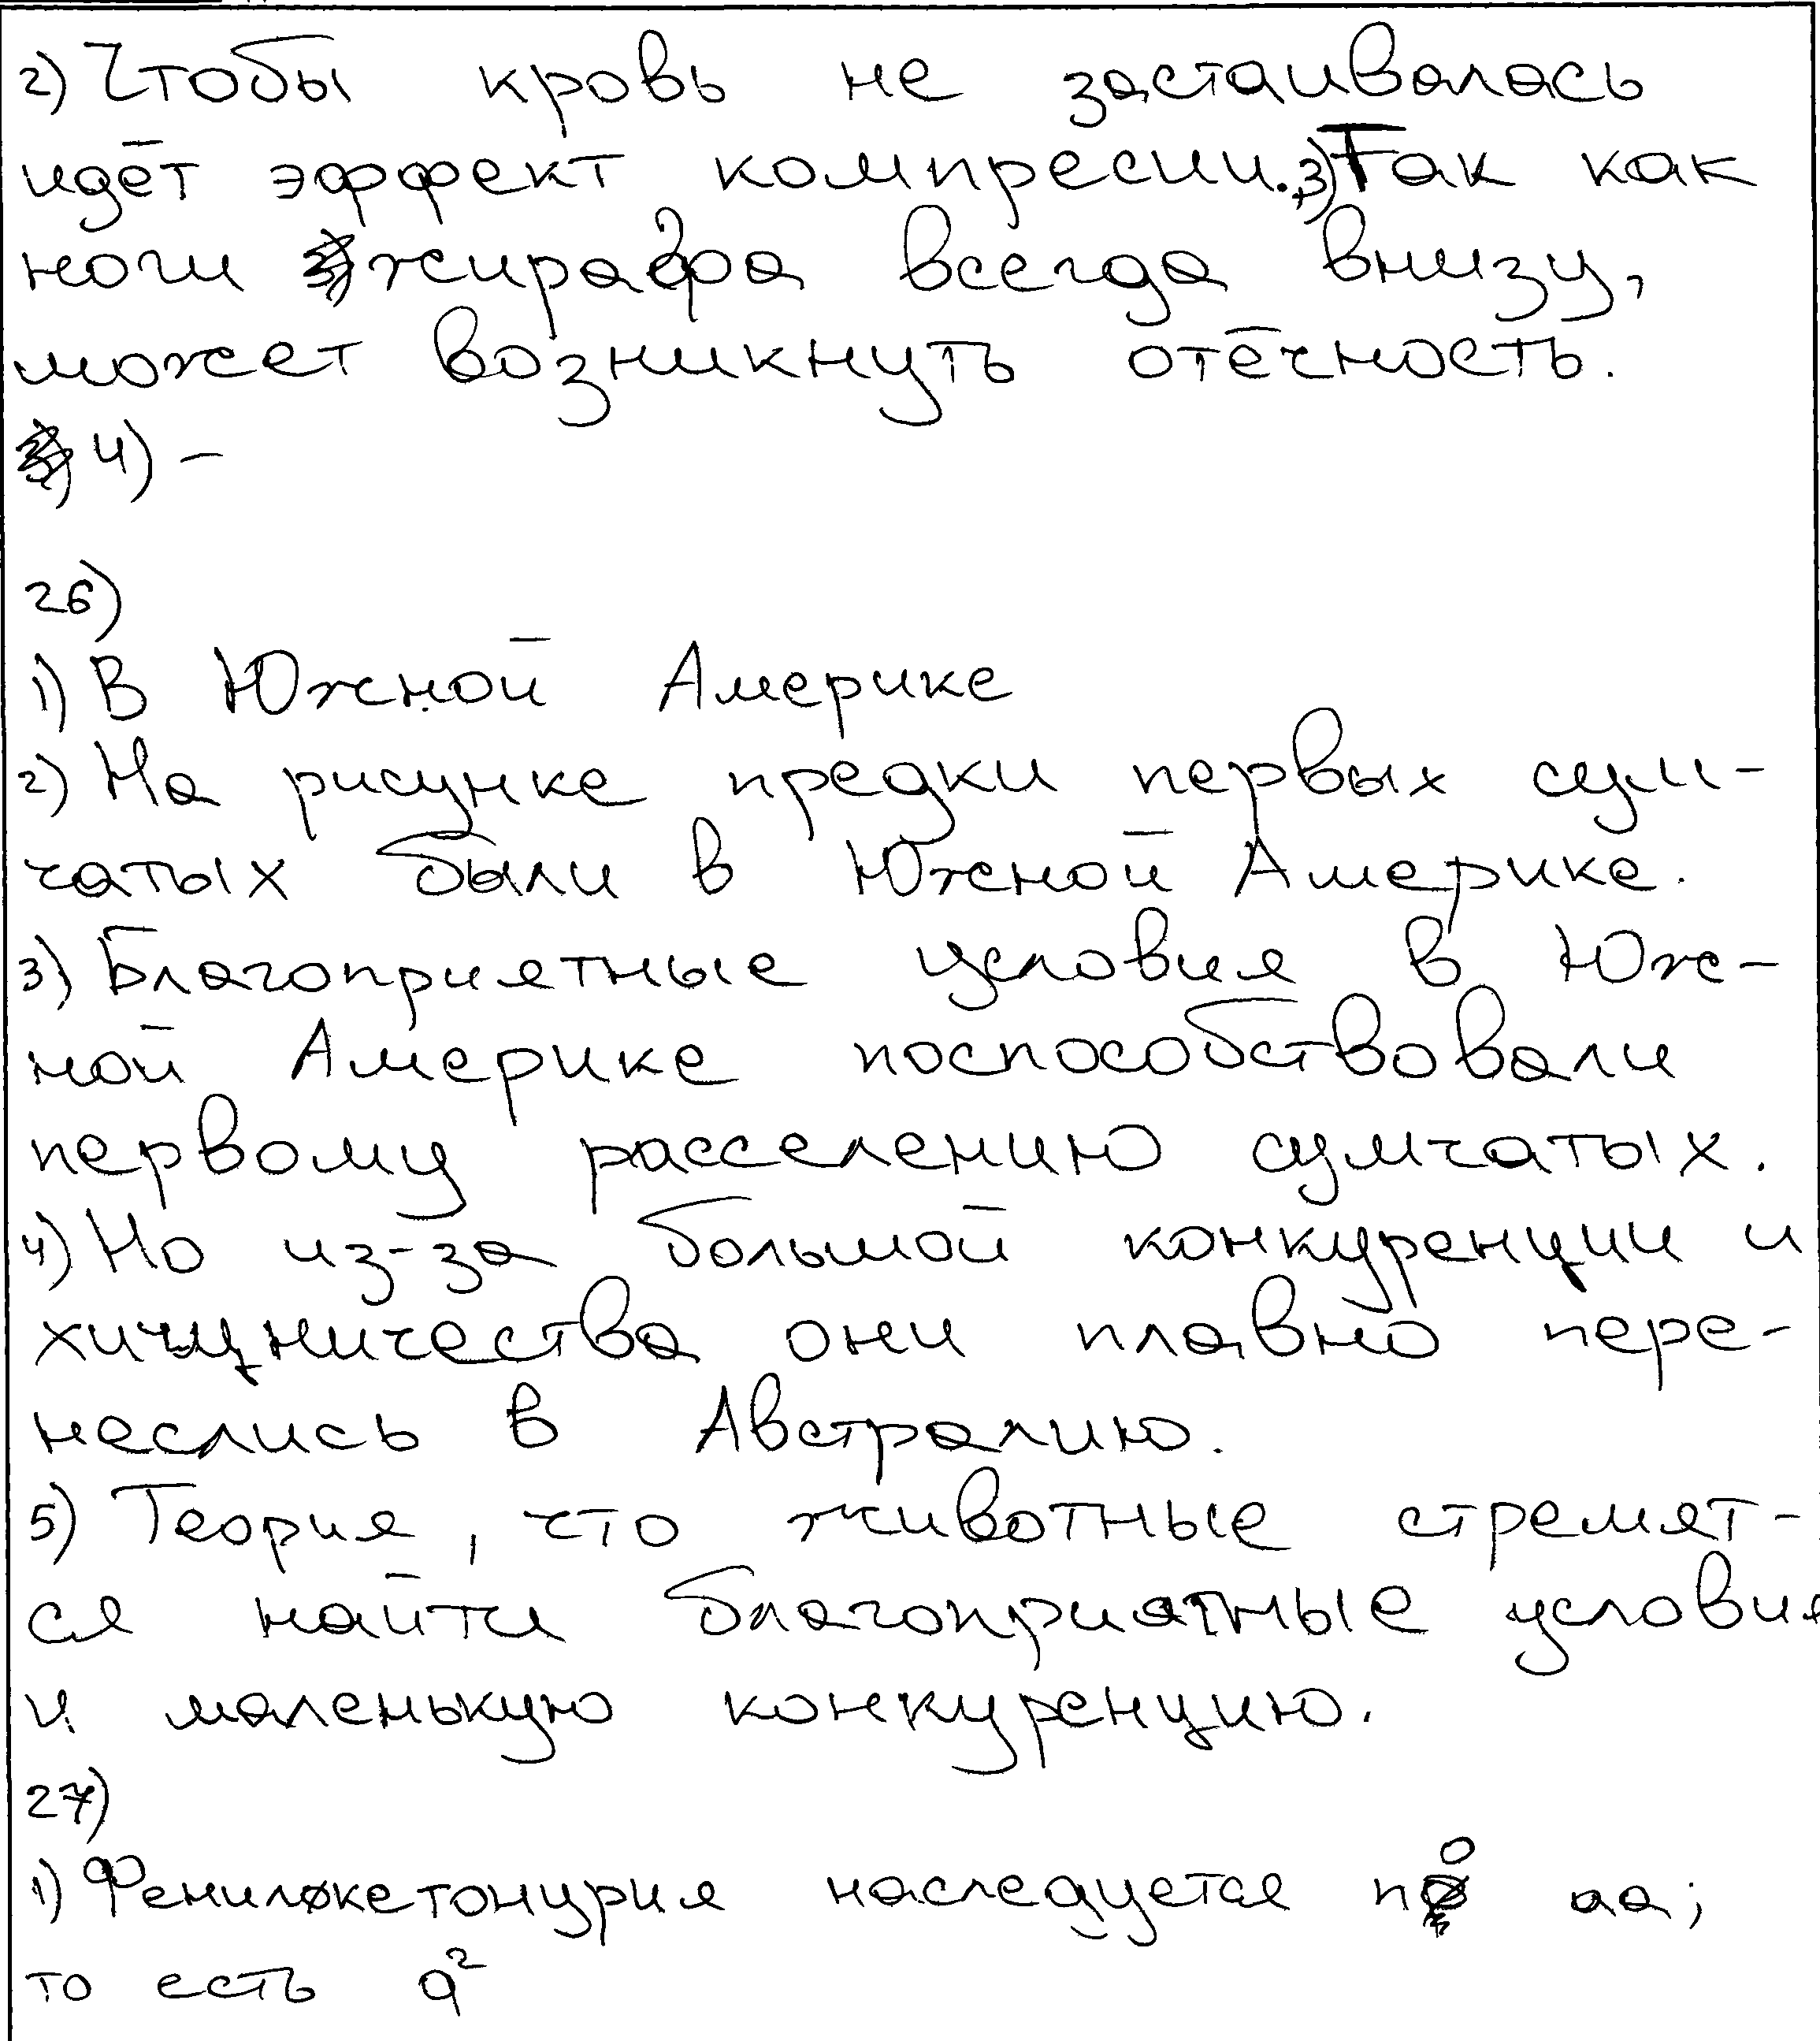 2) Чтобы кровь не застаивалась
идёт эффект компресии. 3) Так как
ноги жирафа всегда внизу,
может возникнуть отёчность.
4) -
26)
1) В Южной Америке
2) На рисунке предки первых сум-
чатых были в Южной Америке.
3) Благоприятные условия в Юж-
ной Америке поспособствовали
первому расселению сумчатых.
4) Но из-за большой конкуренции и
хичщничества они плавно пере-
неслись в Австралию.
5) Теория, что животные стремят-
ся найти благоприятные условия
и маленькую конкуренцию.
27)
1) Фенилкетонурия наследуется по аа;
то есть q²